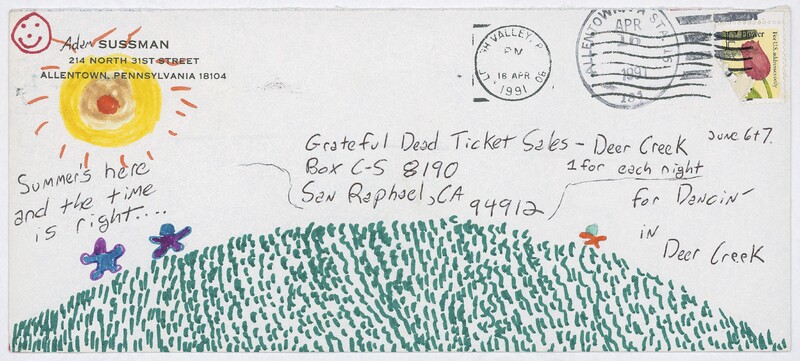 Adam SUSSMAN
214 NORTH 31ST STREET
ALLENTOWN, PENNSYLVANIA 18104
VALLEY, P
PM
18 APR
1991
ALLENTOWN, PA STA
APR
1991
181
Flower
For U.S. addresses only
Grateful Dead Ticket Sales - Deer Creek June 6+7.
Box C-S 8190 1 for each night
San Raphael, CA
94912
for Dancin'
in
Deer Creek
Summer's here
and the time
is right....